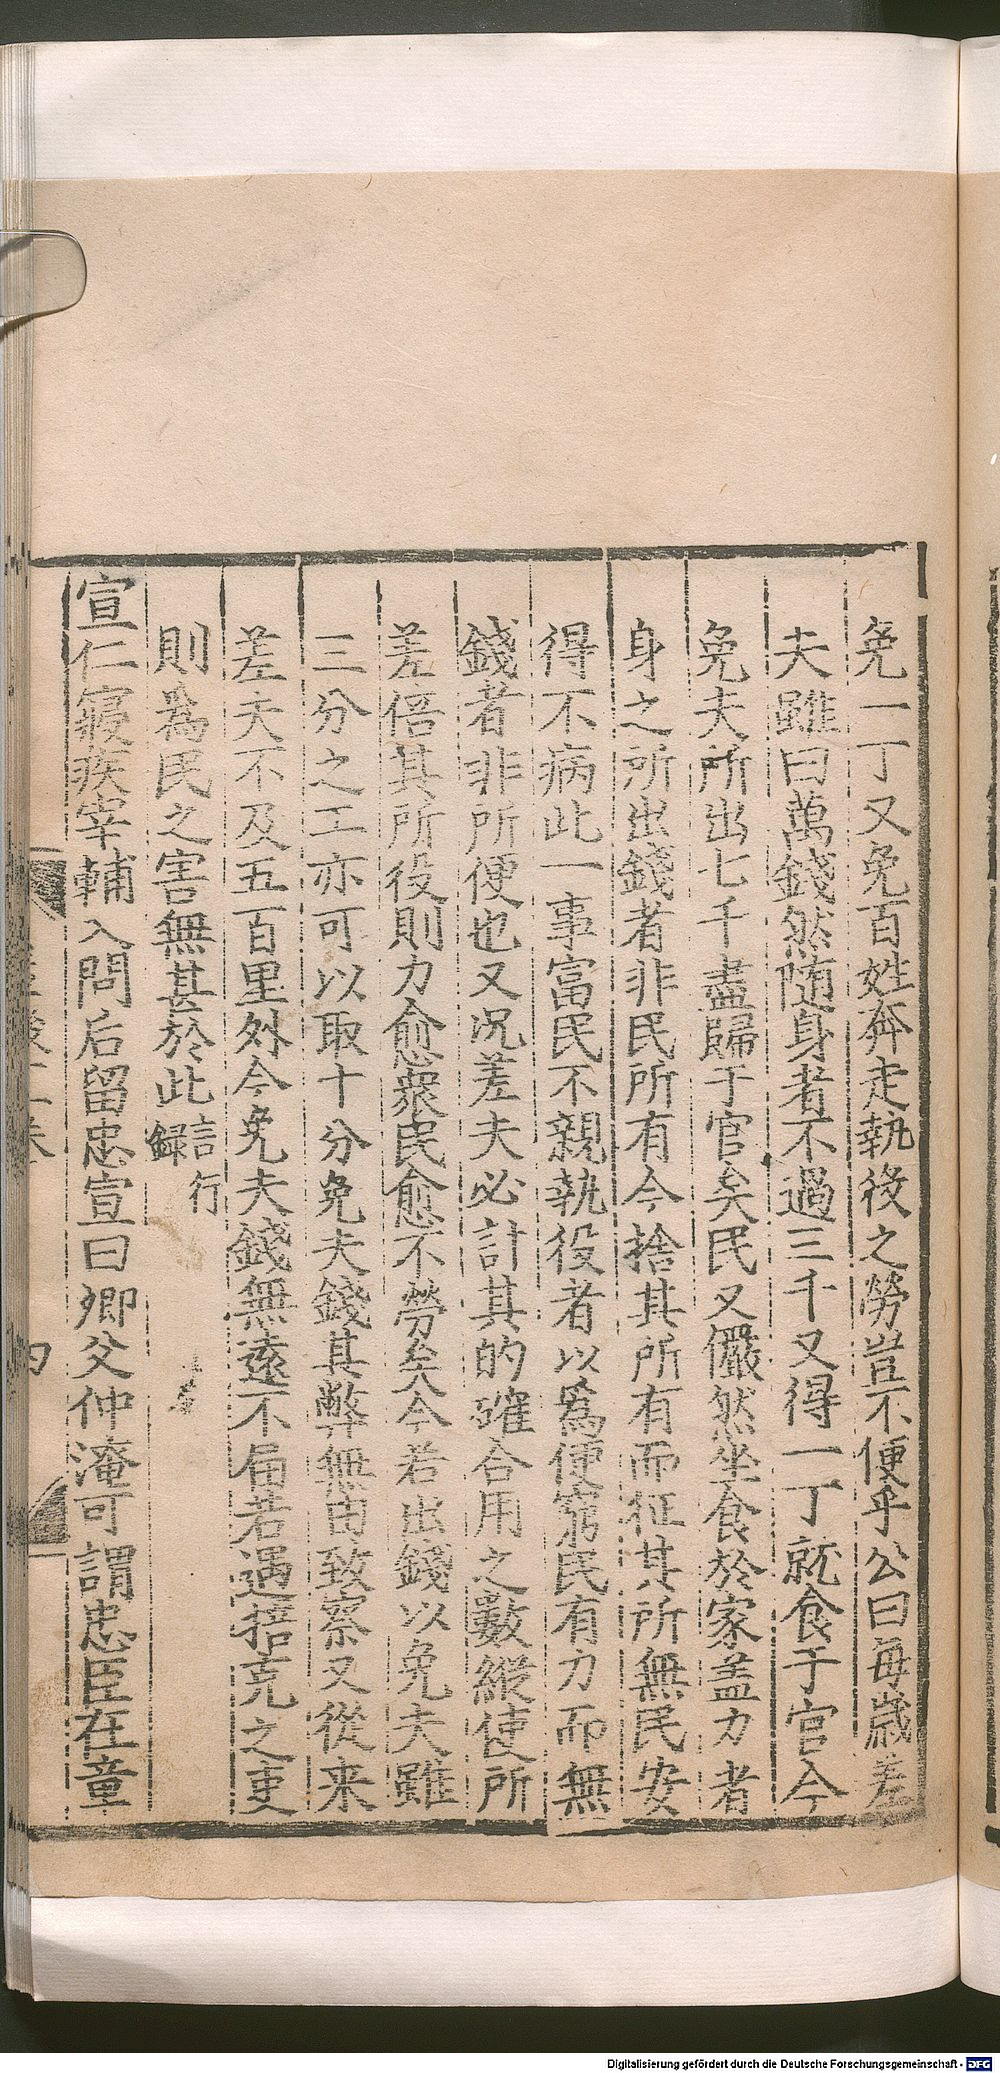 免一丁又免百姓奔走執役之勞豈不便乎公曰每歲差
夫雖曰萬錢然隨身者不過三千又得一丁就食于官今
免夫所出七千盡歸于官矣民又儼然坐食於家盖力者
身之所出錢者非民所有今捨其所有而征其所無民安
得不病此一事富民不親執役者以爲便窮民有力而無
錢者非所便也又况差夫必計其的確合用之數縱使所
差倍其所役則力愈衆民愈不勞矣今若出錢以免夫雖
三分之工亦可以取十分免夫錢其弊無由致察又從来
差夫不及五百里外今免夫錢無遠不届若遇掊克之吏
則為民之害無甚於此言行録
宣仁寢疾宰輔入問后留忠宣曰卿父仲淹可謂忠臣在章
Digitalisierung gefördert durch die Deutsche Forschungsgemeinschaft - DFG